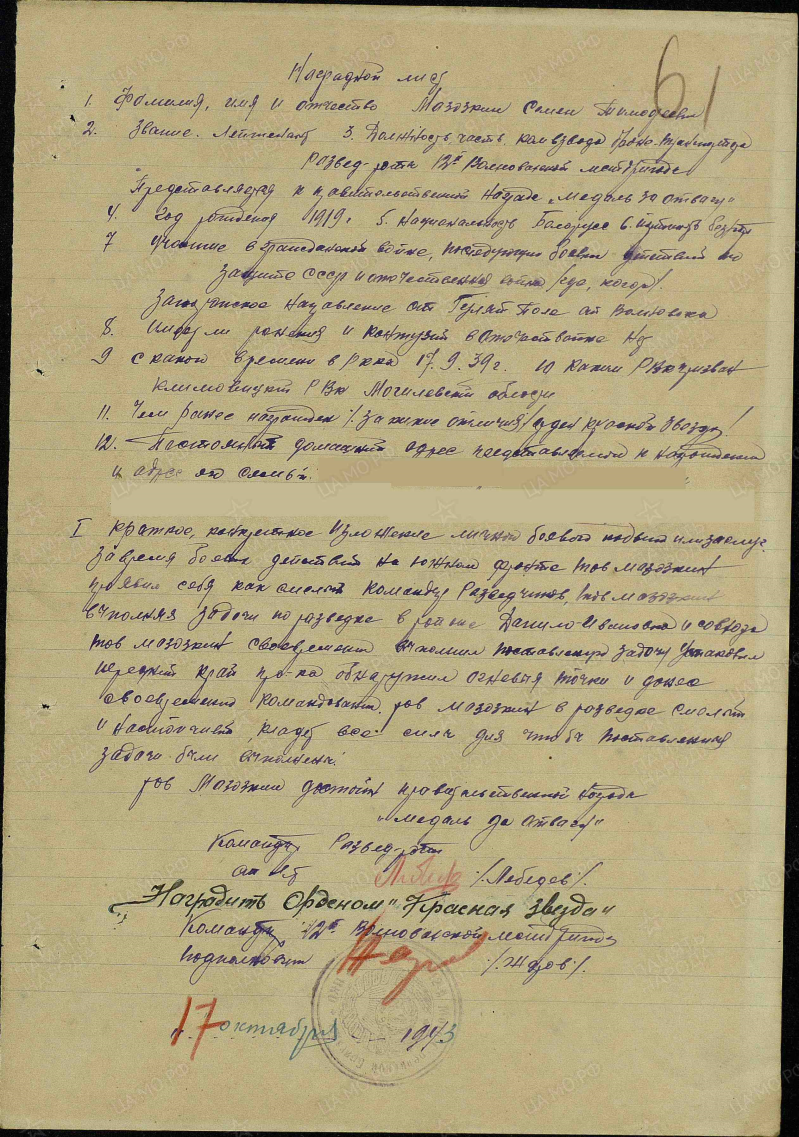 61
Наградной лист
1. Фамилия, имя и отчество Мазозкин Семен Тимофеевич
2. Звание. Лейтенант 3. Должность, часть. ком взвода
Развед-роты 12й Волновахской мото бригады
Представляется к правительственной награде "Медаль за отвагу"
4. Год рождения 1919 г. 5. Национальность Белорусс 6. Партийность
7 Участие в гражданской войне, последующих боевых действий по
защите СССР и отечественной войне /где, когда/.
направление от Гуляй Поле до Волноваха
8. Имеет ли ранения и контузии в отечествойне Нет
9 С какого времени в РККА 17.9.39 г. 10 Каким РВК призван
Климовицким РВК Могилевской области
11. Чем ранее награжден /. за какие отличия / орден красной звезды /
12. Постоянный домашний адрес представляемого к награждению
и адрес его семьи.
I Краткое, конкретное изложение личного боевого подвига или заслуг.
За время боевых действий на южном фронте тов Мазозкин
проявил себя как смелый командир разведчиков, тов Мазозкин
выполняя задачи по разведке в районе Данило-Ивановка и совхоза
тов Мазозкин своевременно выполнил поставленную задачу установил
передний край пр-ка обнаружил огневые точки и донес
своевременно командованию. тов Мазозкин в разведке смелый
и настойчивый, кладет все силы для чтобы поставленные
задачи были выполнены.
тов Мазозкин достойн правительственной награды
"Медаль за отвагу"
Командир Развед-роты
ст л-т /. Лебедев /.
Наградить Орденом "Красная звезда"
Командир 12й Волновахской мото бригады
подполковник /. Жаров /.
17 октября 1943